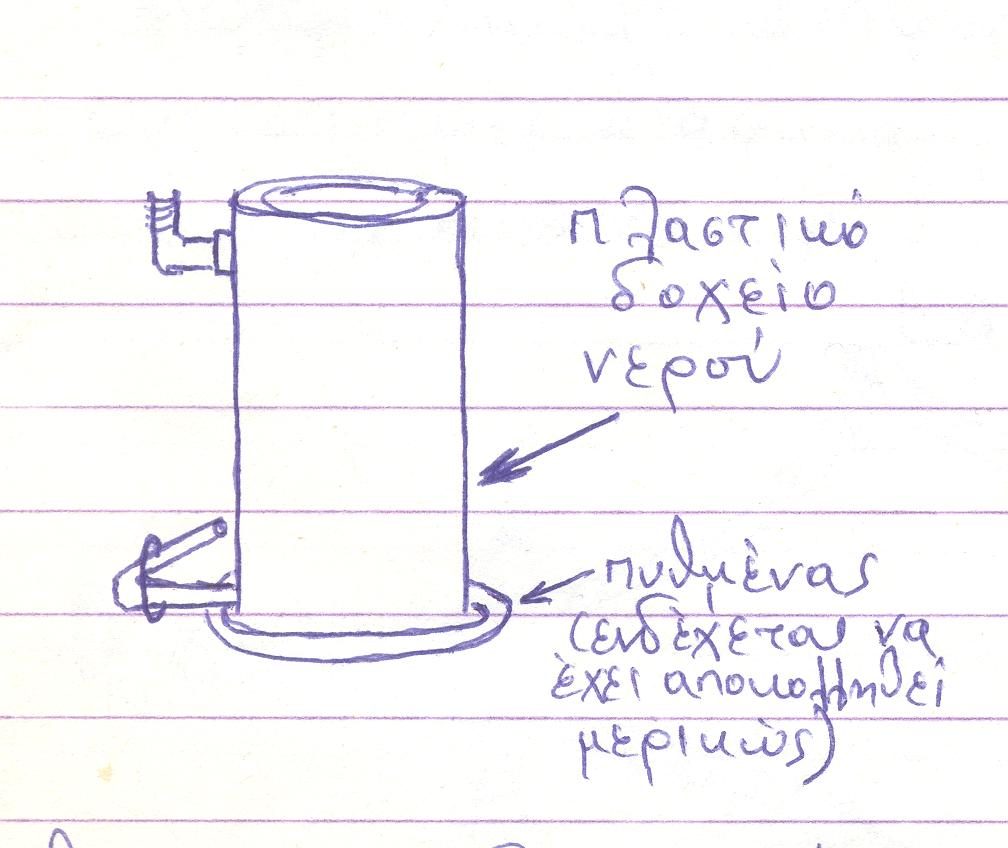 πλαστικό
δοχείο
νερού
πυθμένας
(ενδέχεται να
έχει αποκολληθεί
μερικώς)